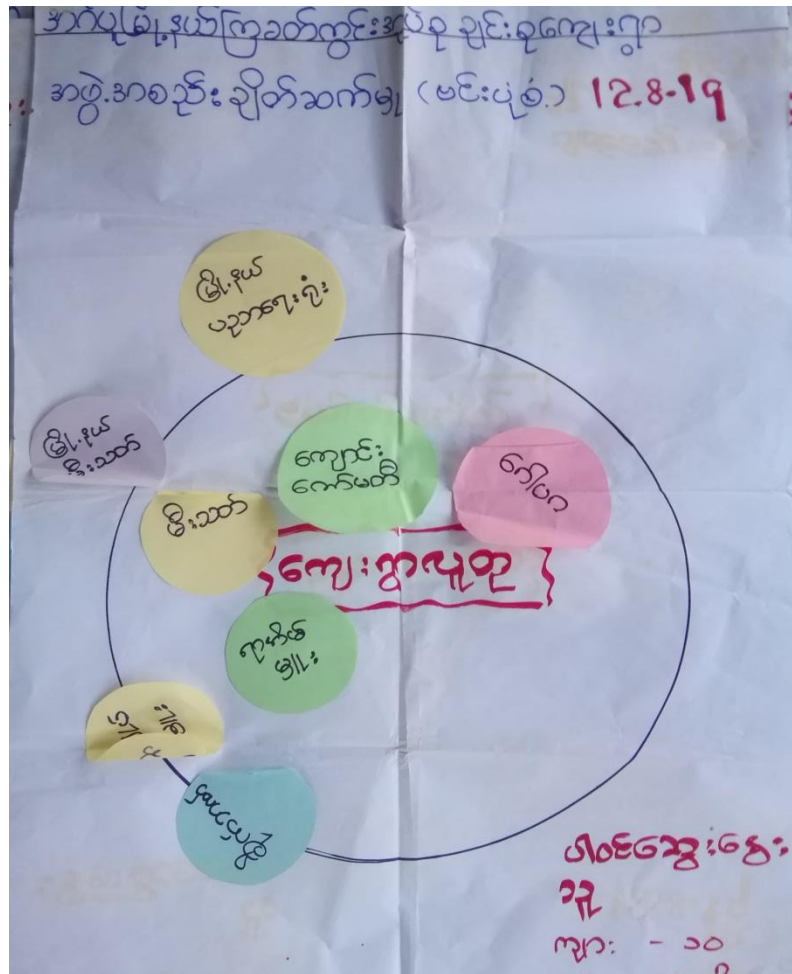 အင်္ဂပူမြို့နယ်ကြခတ်ကွင်းအုပ်စု ချင်းစုကျေးရွာ
အဖွဲ့အစည်းချိတ်ဆက်မှု (ဗင်းပုံစံ) 12.8-19
မြို့နယ်
ပညာရေးရုံး
မြို့နယ်
မီးသတ်
ကျောင်း
ကော်မတီ
ဂေါပက
မီးသတ်
ကျေးရွာလူထု
ရာအိမ်
မှူး
ပါဝင်ဆွေးနွေး
သူ
ကျား - ၁၀